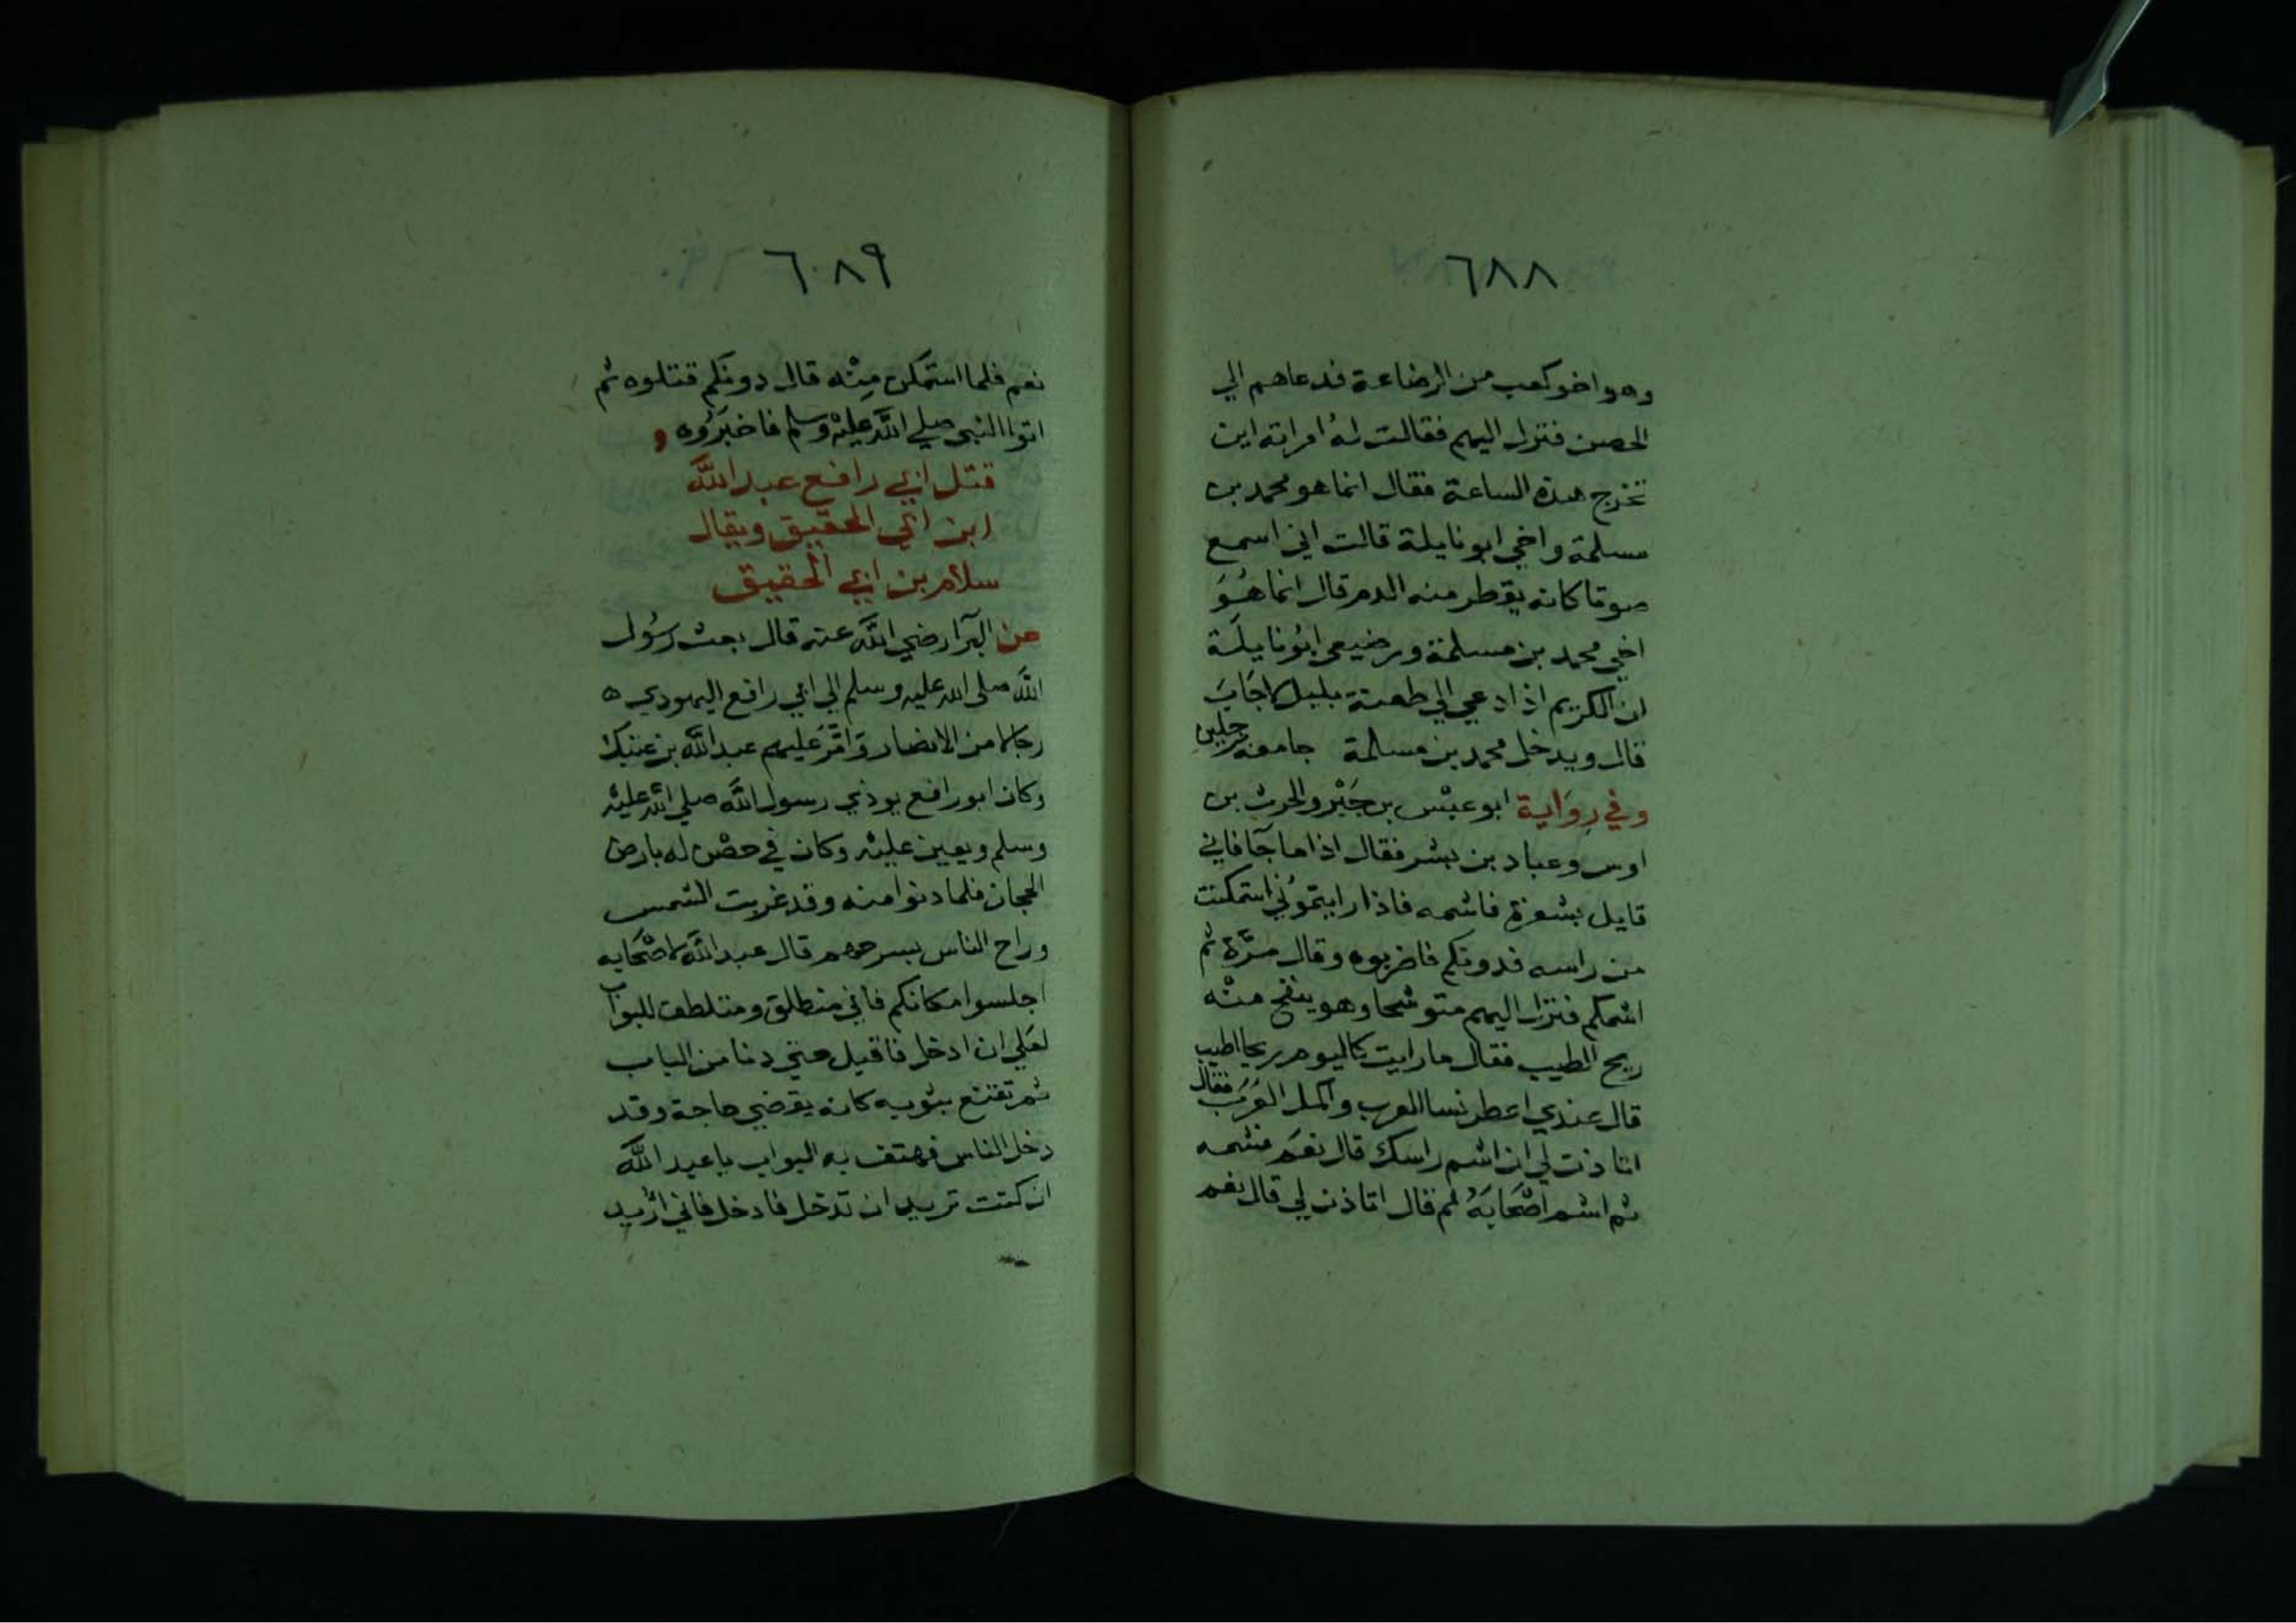 ٦٨٨
وهو اخو كعب من الرضاعة فدعاهم الي
الحصن فنزل اليهم فقالت لهُ امراته اين
تخرج هذه الساعة فقال انما هو محمد بن
مسلمة واخي ابو نايلة قالت اني اسمع
صوتا كانه يقطر منه الدم قال انما هُوَ
اخي محمد بن مسلمة ورضيعي ابُو نايلَة
ان الكريم اذا دعي الي طعنة بليل لاجَابَ
قال ويدخل محمد بن مسلمة جامعه رجلين
وفي رِوَاية ابو عبْس بن جَبْر والحرث بن
اوس وعباد بن بشر فقال اذا ما جآ فاني
قايل بشعرة فاشمه فاذا رايتمُوني استمكنت
من راسه فدونكم فاضربوه وقال مرَّة ثم
اشمكم فنزل اليهم متوشحا وهو ينفح منْه
ريح الطيب فقال ما رايت كاليوم ريحا اطيب
قال عندي اعطر نسا العرب واكمل العَرَب فقال
اتاذن لي ان اشم راسك قال نعَم فشمه
ثم اشم اصْحَابَهُ ثم قال اتاذن لي قال نعم
٦٠٨٩
نعم فلما استمكن مِنْه قال دونكم فقتلوه ثم
اتوا النبي صلي اللَّه عليْه وسلم فاخبَرُوه
قتل ابي رافع عبد اللَّه
ابن ابي الحقيق ويقال
سلام بن ابي الحقيق
عن البرآ رضي اللَّه عنه قال بعث رسُول
اللَّه صلى الله عليه وسلم الي ابي رافع اليهودي ه
رجالا من الانصار وَامَّرَ عليهم عبد اللَّه بن عتيك
وكان ابو رافع يوذي رسول اللَّه صلي اللَّه عليْه
وسلم ويعين عليْه وكان في حصْن له بارض
الحجاز فلما دنوا منه وقد غربت الشمس
وراح الناس بسرحهم قال عبد اللَّه لاصْحَابه
اجلسوا مكانكم فاني منطلق ومتلطف للبواب
لعَلي ان ادخل فاقبل حتي دنا من الباب
ثم تقنع بثوبه كانه يقضي حاجة وقد
دخل الناس فهتف به البواب يا عبد اللَّه
ان كنت تريد ان تدخل فادخل فاني ارُيد